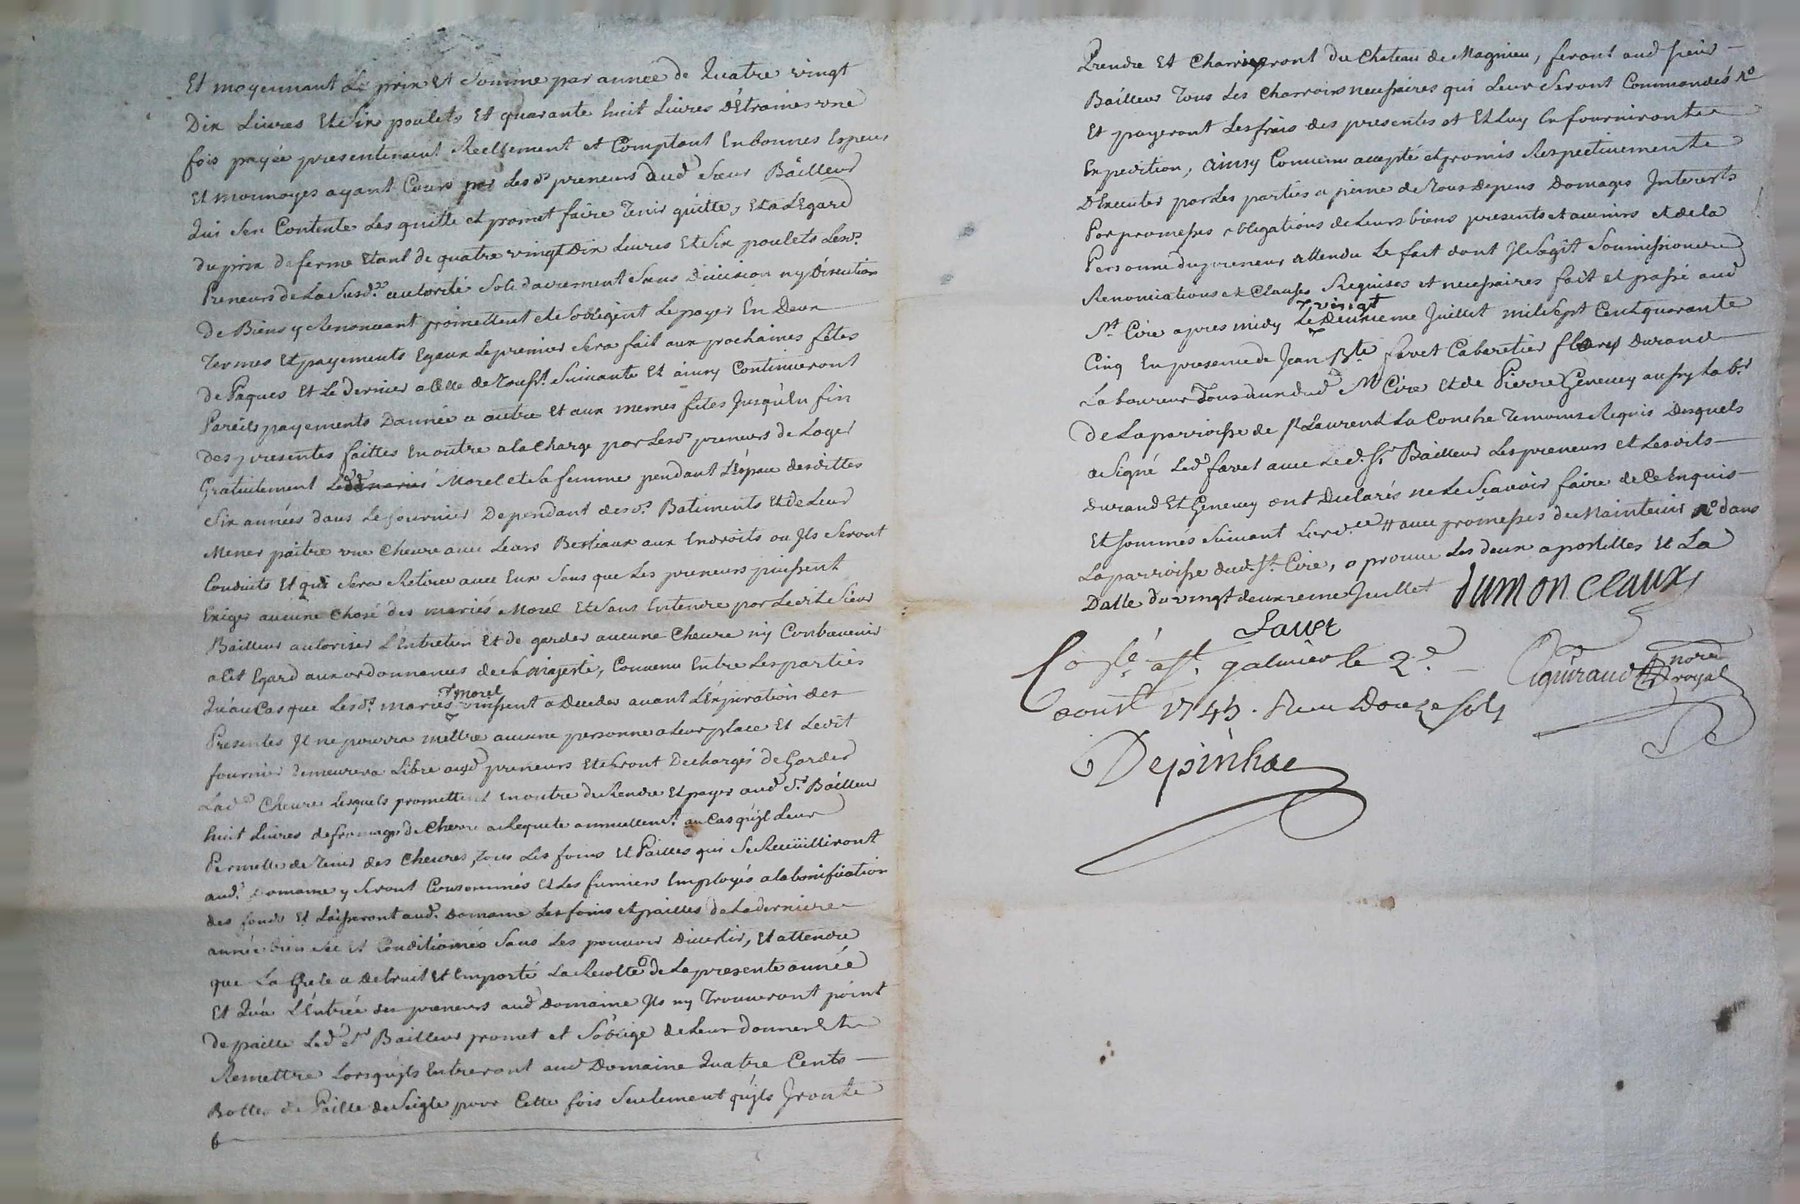 Et moyennant Le prix et somme par année de Quatre vingt
Dix Livres Et Six poulets Et quarante huit Livres D'Etraines une
fois payée presentement Reellement et Comptant En bonnes Especes
Et monnoyes ayant Cours par Lesd. preneurs aud. Sieur Bailleur
Qui s'en Contente Les quitte et promet faire Tenir quitte, Et a L'Egard
du prix de ferme Etant de quatre vingt Dix Livres Et Six poulets Lesd.
Preneurs de La Susd.e autorité Solidairement Sans Division ny Discution
de Biens y Renoncant promettent et s'obligent Le payer En Deux
Termes Et payements Egaux Le premier Sera fait aux prochaines fêtes
de Paques Et Le Dernier a Celle de Touss.t Suivante Et ainsy Continueront
Pareils payements D'année a autre Et aux memes fêtes Jusqu'a fin
Des presentes faittes En outre a la Charge par Lesd. preneurs de Loger
Gratuitement Morel et sa femme pendant L'Espace desdittes
Six années dans Le fournier Dependant desd. Batiments Et de Leur
Mener paitre une Chevre avec Leurs Bestiaux aux Endroits ou Ils Seront
Conduits Et qui Sera Retirée avec Eux Sans que Les preneurs puissent
Exiger aucune Chose des mariés Morel Et Sans Entendre par Ledit Sieur
Bailleur autoriser L'Entretien Et de garder aucune Chevre ny Contrevenir
a Cet Egard aux ordonnances de sa Majesté, Convenu Entre Les parties
Qu'au Cas que Lesd. mariés Morel vinssent a Deceder avant L'Expiration des
Presentes Il ne pourra mettre aucune personne a Leur place Et Ledit
fournier Demeurera Libre auxd. preneurs Et Seront Dechargés de Garder
Lad. Chevre Lesquels promettent En outre de Rendre Et payer aud. Sr. Bailleur
huit Livres de fromage de Chevre annuellem.t au Cas qu'il Leur
Permette de Tenir des Chevres, Tous Les foins Et Pailles qui Se Recüilliront
aud. Domaine y Seront Consommés Et Les fumiers Employés a la bonification
des fonds Et Laisseront aud. Domaine Les foins et pailles de La derniere
année bien Sec Et Conditionnés Sans Les pouvoir Divertir, Et attendu
que La Grele a Detruit Et Emporté La Recolte de La presente année
Et Qu'a L'Entrée des preneurs aud. Domaine Ils ny Trouveront point
De paille Led. Sr. Bailleur promet et S'oblige de Leur donner Et
Remettre Lors qu'ils Entreront aud. Domaine Quatre Cents
Bottes de Paille de Seigle pour Cette fois Seulement qu'ils Iront
Prendre Et Charrieront du Chateau de Magnieu, feront aud. Sieur
Bailleur Tous Les Charrois necessaires qui Leur Seront Commandés
Et payeront Les frais des presentes et Et Luy En fourniront
Expedition, ainsy Convenu accepté et promis Respectivement
D'Executer par Les parties a peine de Tous Depens Domages Interests
Par promesses obligations de Leurs biens presents et avenirs et de La
Personne du preneur attendu Le fait dont Il S'agit Soumissions
Renonciations et Clauses Requises et necessaires fait et passé aud.
St. Cire apres midy Le vingt Deuxieme Juillet mil Sept Cent quarante
Cinq En presence de Jean Bte. favet Cabaretier Durand
Laboureur Tous deux dud. St. Cire Et de Pierre Genevey aussy Labr.
de La parroisse de St. Laurent La Conche Temoins Requis Desquels
a Signé Led. favet avec Led. Sr. Bailleur Les preneurs et Lesdits
Durand Et Genevey ont Declarés ne Le Sçavoir faire de Ce Enquis
Et Sommés Suivant L'ord.ce avec promesses de Maintenir dans
La parroisse dud. St. Cire, approuve Les deux apostilles Et La
Datte du vingt deuxieme Juillet Dumonceaux
Favet
Con.lé a St. galmier le 2e
aoust 1745. Reçu Douze sols
Ciguiraud nore. royal
Depinhac